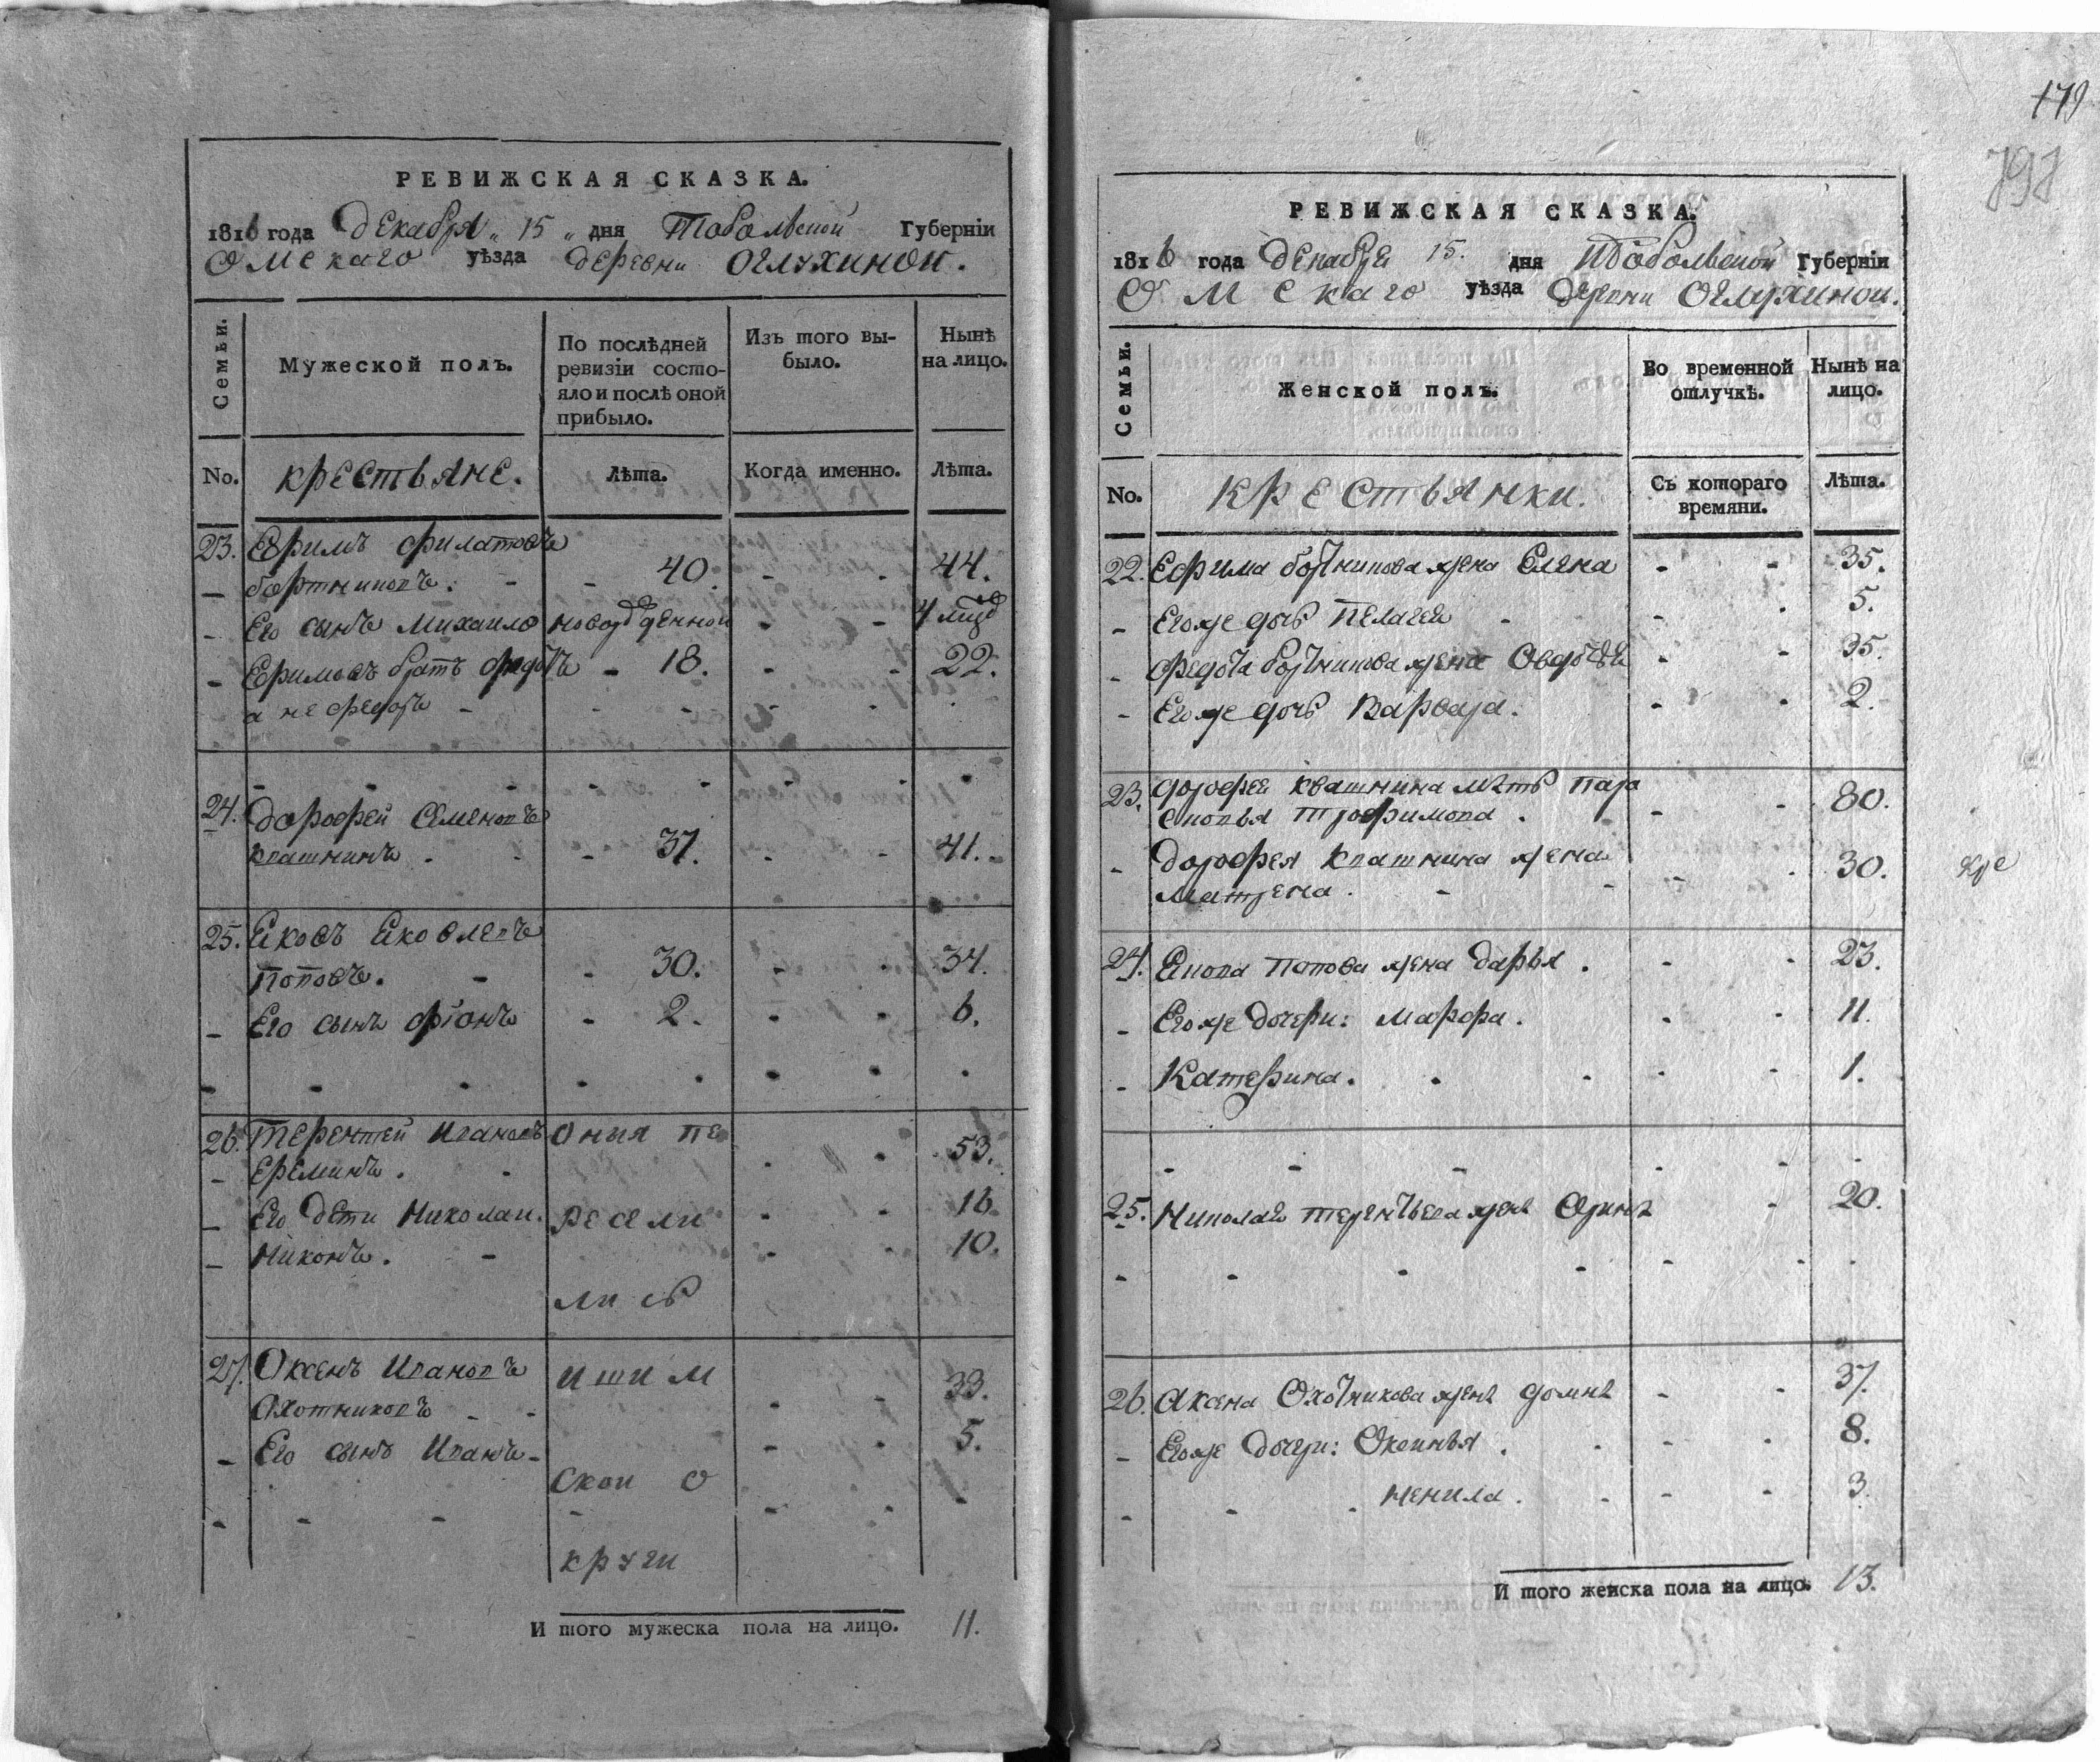 РЕВИЖСКАЯ СКАЗКА.
1816 года Декабря „ 15 „ дня Тобольской Губерніи
Омскаго уѣзда деревни Оглухиной.
Семьи.
Мужеской полъ.
По послѣдней ревизіи состо-
яло и послѣ оной
прибыло.
Изъ того вы-
было.
Нынѣ
на лицо.
No.
крестьяне.
Лѣта.
Когда именно.
Лѣта.
23. Ефимъ Филатовъ
бортниковъ. 40. 44.
Его сынъ Михаило новорожденной 4 лѣтъ
Ефимовъ братъ Федотъ 18. 22.
а не Федоръ
24. Дорофей Семеновъ
квашнинъ. 37. 41.
25. Яковъ Яковлевъ
Поповъ. 30. 34.
Его сынъ Фіонъ 2. 6.
26. Терентей Ивановъ Оныя пе
Ереминъ. 53.
Его дети Николаи. ресели 16.
Никонъ. 10.
лись
27. Оксенъ Ивановъ ишим
Охотниковъ 33.
Его сынъ Иванъ 5.
скои о
круги
И того мужеска пола на лицо. 11.
179
797
РЕВИЖСКАЯ СКАЗКА.
1816 года Декабря 15. дня Тобольской Губерніи
Омскаго уѣзда деревни Оглухиной.
Семьи.
Женской полъ.
Во временной
отлучкѣ.
Нынѣ на
лицо.
No.
крестьянки.
Съ котораго
времяни.
Лѣта.
22. Ефима бортникова жена Елена 35.
Егоже дочь Пелагея 5.
Федота бортникова жена Овдотья 35.
Егоже дочь Варвара. 2.
23. Дорофея квашнина мать пара
сковья трофимова. 80.
Дорофея квашнина жена 30.
Матрена.
24. Якова Попова жена Дарья. 23.
Егоже дочери: Марфа. 11.
Катерина. 1.
25. Николая терентьева жена Орина 20.
26. Аксена Охотникова жена домна 37.
Егоже дочери: Оксинья. 8.
Ненила. 3.
И того женска пола на лицо. 13.